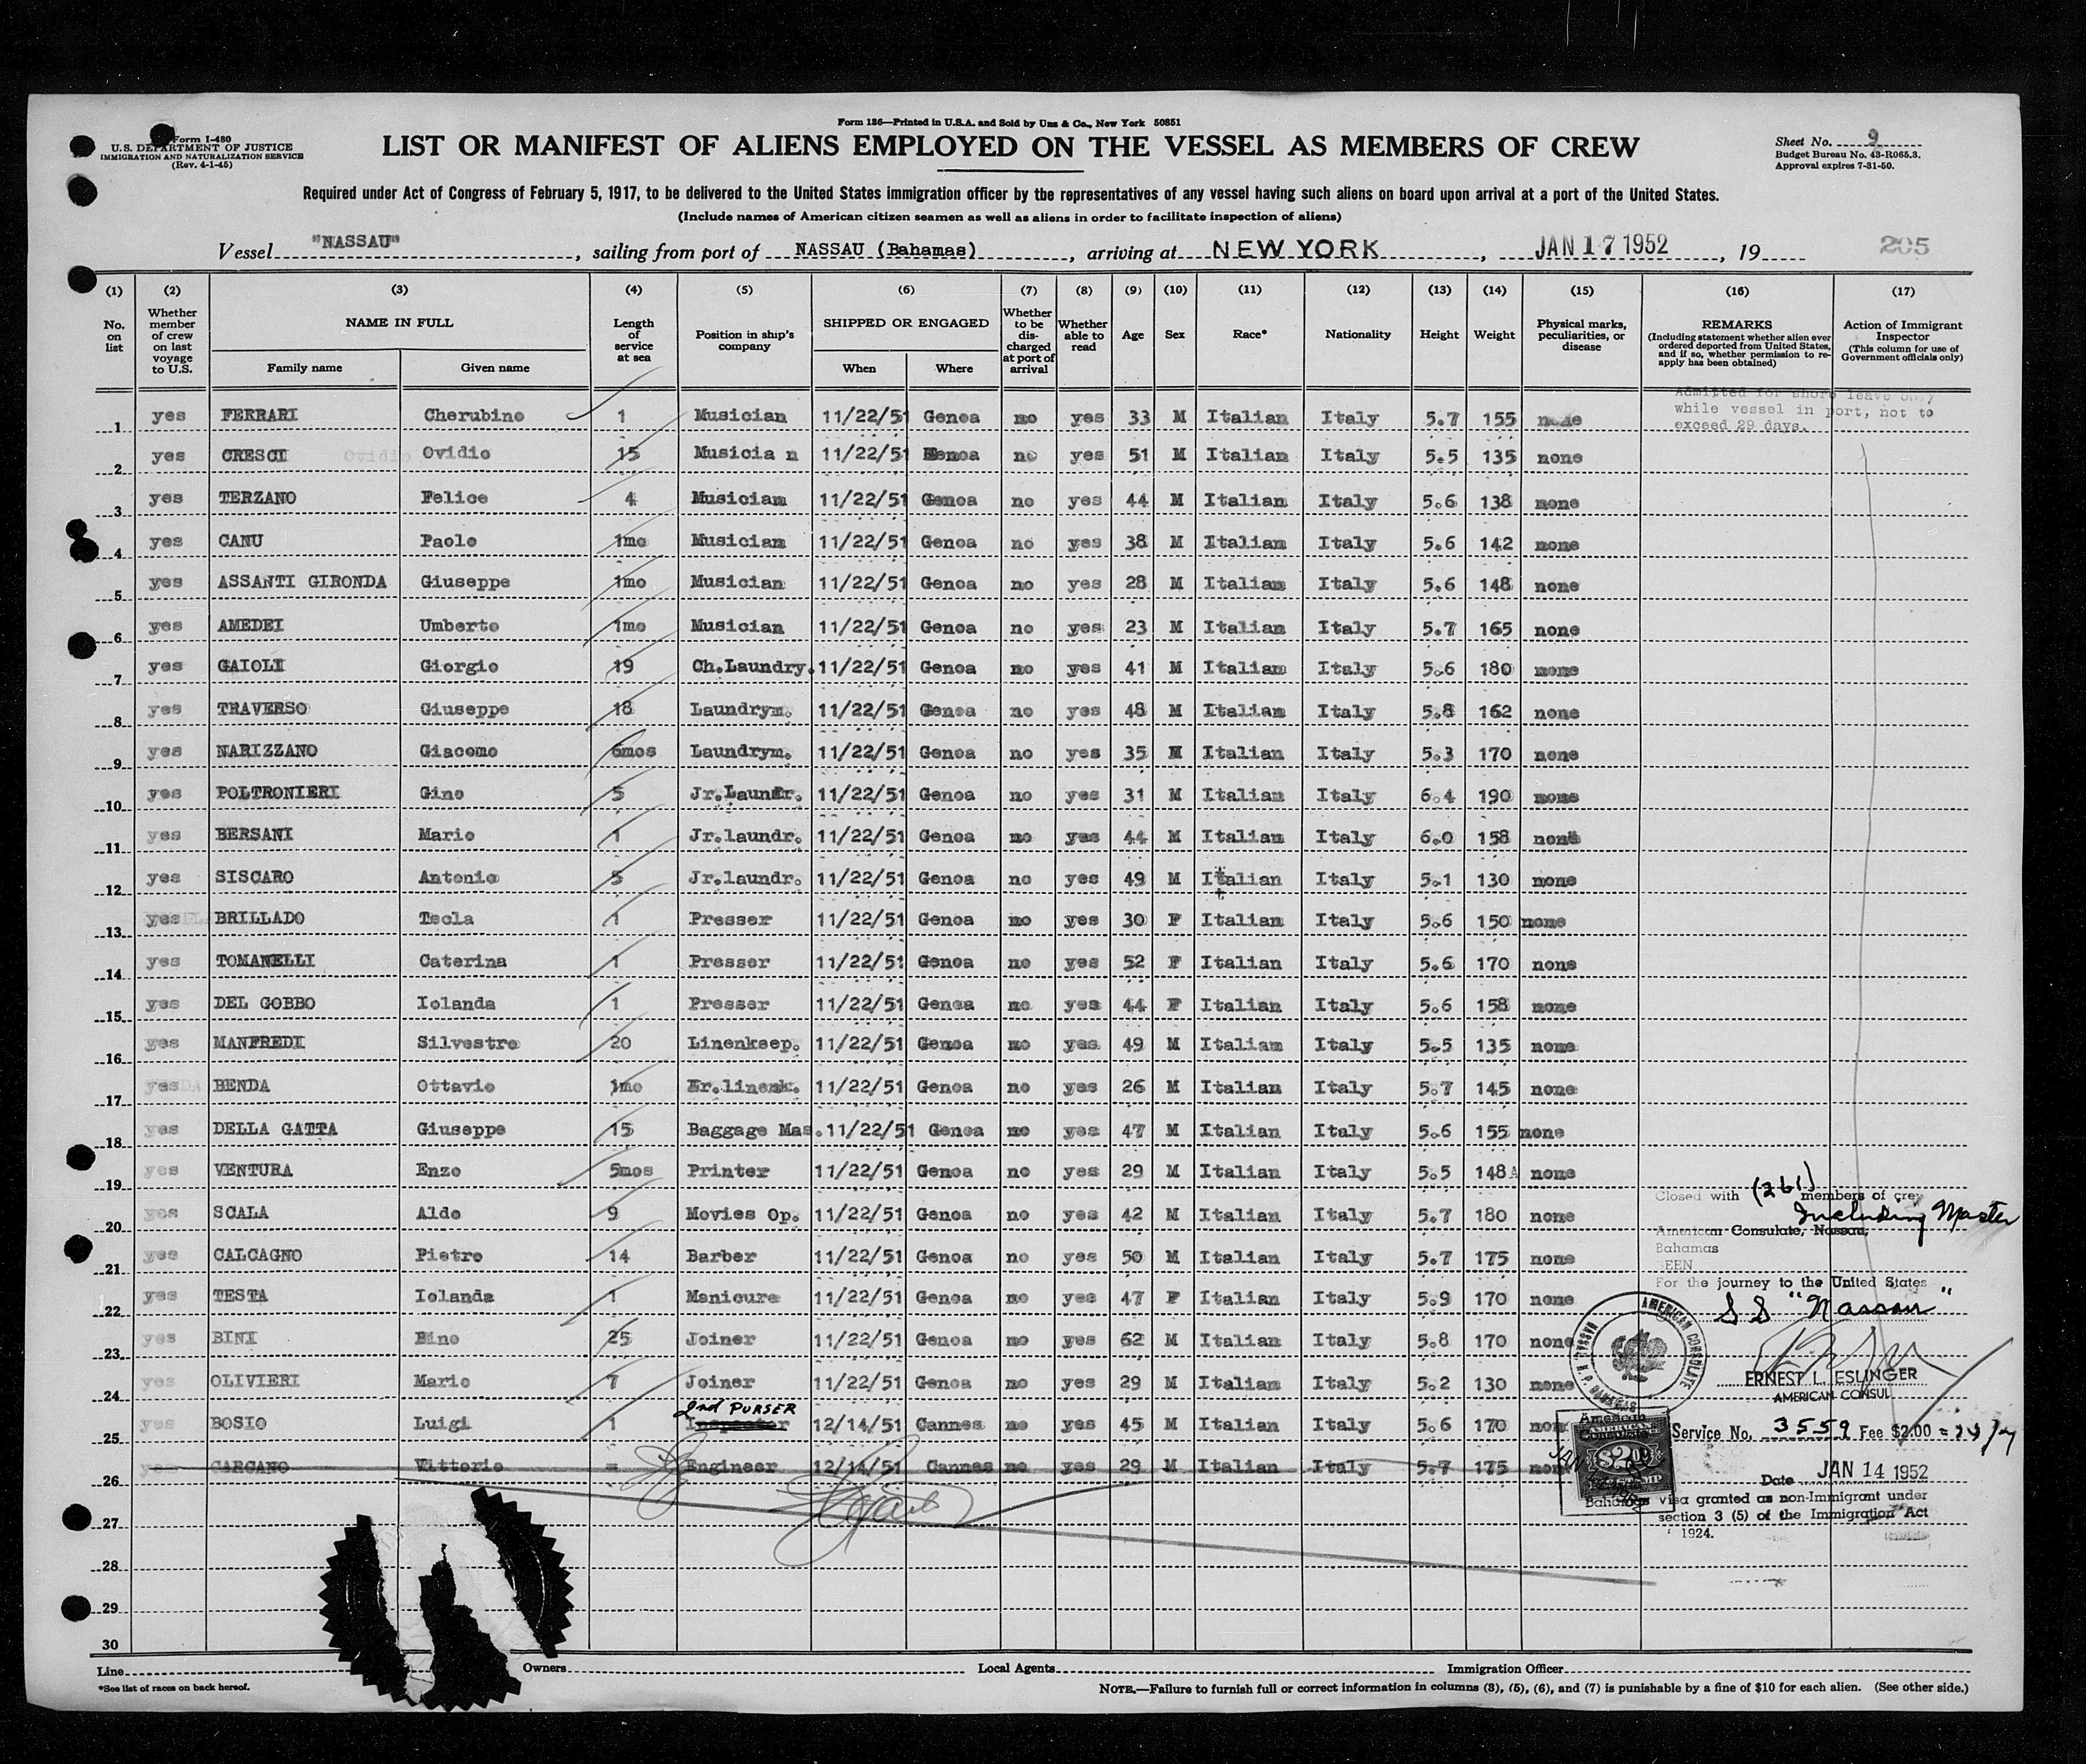 Form 136—Printed in U.S.A. and Sold by Unz & Co., New York 50851
Form I-480
U.S. DEPARTMENT OF JUSTICE
IMMIGRATION AND NATURALIZATION SERVICE
(Rev. 4-1-45)
LIST OR MANIFEST OF ALIENS EMPLOYED ON THE VESSEL AS MEMBERS OF CREW
Sheet No. 9
Budget Bureau No. 43-R065.3.
Approval expires 7-31-50.
Required under Act of Congress of February 5, 1917, to be delivered to the United States immigration officer by the representatives of any vessel having such aliens on board upon arrival at a port of the United States.
(Include names of American citizen seamen as well as aliens in order to facilitate inspection of aliens)
Vessel "NASSAU", sailing from port of NASSAU (Bahamas), arriving at NEW YORK, JAN 17 1952, 19 205
(1) (2) (3) (4) (5) (6) (7) (8) (9) (10) (11) (12) (13) (14) (15) (16) (17)
No. on list
Whether member of crew on last voyage to U.S.
NAME IN FULL
Family name Given name
Length of service at sea
Position in ship's company
SHIPPED OR ENGAGED
When Where
Whether to be discharged at port of arrival
Whether able to read
Age Sex Race* Nationality Height Weight
Physical marks, peculiarities, or disease
REMARKS
(Including statement whether alien ever ordered deported from United States, and if so, whether permission to reapply has been obtained)
Action of Immigrant Inspector
(This column for use of Government officials only)
Admitted for shore leave only
while vessel in port, not to
exceed 29 days.
1 yes FERRARI Cherubino 1 Musician 11/22/51 Genoa no yes 33 M Italian Italy 5.7 155 none
2 yes CRESCI Ovidio 15 Musicia n 11/22/51 Genoa no yes 51 M Italian Italy 5.5 135 none
3 yes TERZANO Felice 4 Musician 11/22/51 Genoa no yes 44 M Italian Italy 5.6 138 none
4 yes CANU Paolo 1mo Musician 11/22/51 Genoa no yes 38 M Italian Italy 5.6 142 none
5 yes ASSANTI GIRONDA Giuseppe 1mo Musician 11/22/51 Genoa no yes 28 M Italian Italy 5.6 148 none
6 yes AMEDEI Umberto 1mo Musician 11/22/51 Genoa no yes 23 M Italian Italy 5.7 165 none
7 yes GAIOLI Giorgio 19 Ch.Laundry. 11/22/51 Genoa no yes 41 M Italian Italy 5.6 180 none
8 yes TRAVERSO Giuseppe 18 Laundrym. 11/22/51 Genoa no yes 48 M Italian Italy 5.8 162 none
9 yes NARIZZANO Giacomo 6mos Laundrym. 11/22/51 Genoa no yes 35 M Italian Italy 5.3 170 none
10 yes POLTRONIERI Gino 5 Jr.Laundr. 11/22/51 Genoa no yes 31 M Italian Italy 6.4 190 none
11 yes BERSANI Mario 1 Jr.laundr. 11/22/51 Genoa no yes 44 M Italian Italy 6.0 158 none
12 yes SISCARO Antonio 5 Jr.laundr. 11/22/51 Genoa no yes 49 M Italian Italy 5.1 130 none
13 yes BRILLADO Tecla 1 Presser 11/22/51 Genoa no yes 30 F Italian Italy 5.6 150 none
14 yes TOMANELLI Caterina 1 Presser 11/22/51 Genoa no yes 52 F Italian Italy 5.6 170 none
15 yes DEL GOBBO Iolanda 1 Presser 11/22/51 Genoa no yes 44 F Italian Italy 5.6 158 none
16 yes MANFREDI Silvestro 20 Linenkeep. 11/22/51 Genoa no yes 49 M Italian Italy 5.5 135 none
17 yes BENDA Ottavio 1mo linenk. 11/22/51 Genoa no yes 26 M Italian Italy 5.7 145 none
18 yes DELLA GATTA Giuseppe 15 Baggage Mas. 11/22/51 Genoa no yes 47 M Italian Italy 5.6 155 none
19 yes VENTURA Enzo 5mos Printer 11/22/51 Genoa no yes 29 M Italian Italy 5.5 148 none
20 yes SCALA Aldo 9 Movies Op. 11/22/51 Genoa no yes 42 M Italian Italy 5.7 180 none
21 yes CALCAGNO Pietro 14 Barber 11/22/51 Genoa no yes 50 M Italian Italy 5.7 175 none
22 yes TESTA Iolanda 1 Manicure 11/22/51 Genoa no yes 47 F Italian Italy 5.9 170 none
23 yes BINI Bino 25 Joiner 11/22/51 Genoa no yes 62 M Italian Italy 5.8 170 none
24 yes OLIVIERI Mario 7 Joiner 11/22/51 Genoa no yes 29 M Italian Italy 5.2 130 none
2nd PURSER
25 yes BOSIO Luigi 1 Inspector 12/14/51 Cannes no yes 45 M Italian Italy 5.6 170 none
26 yes CARCANO Vittorio = Engineer 12/14/51 Cannes no yes 29 M Italian Italy 5.7 175 none
27
28
29
30
Closed with (261) members of crew
Including Master
American Consulate, Nassau,
Bahamas
SEEN
For the journey to the United States
SS "Nassau"
AMERICAN CONSULATE
NASSAU N.P. BAHAMAS
ERNEST L. ESLINGER
AMERICAN CONSUL
American
Service No. 3559 Fee $2.00
$2.00
Date JAN 14 1952
Bahamas Visa granted as non-Immigrant under
section 3 (5) of the Immigration Act
1924.
Line Owners Local Agents Immigration Officer
*See list of races on back hereof.
NOTE.—Failure to furnish full or correct information in columns (3), (5), (6), and (7) is punishable by a fine of $10 for each alien. (See other side.)